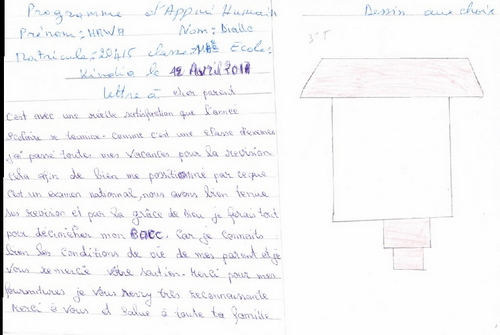 Programme d'Appui Humain
Prénom : HAWA Nom : Diallo
Matricule : 20415 classe : Ecole :
Kindia le 12 Avril 2017
lettre à cher parent
C'est avec une réelle satisfaction que l'année
scolaire se termine. Comme c'est une classe d'examen
j'ai passé toutes mes vacances pour la revision
cela afin de bien me positionné par ceque
C'est un examen nationnal, nous avons bien tenue
ses revision et par la grâce de Dieu je ferais tout
pour décrocher mon BACC. Car je connais
bien les conditions de vie de mes parent et je
vous remercie votre soutien. Merci pour mes
fournitures je vous très reconnaissante
Merci à vous et salue à toute ta famille
Dessin au choix